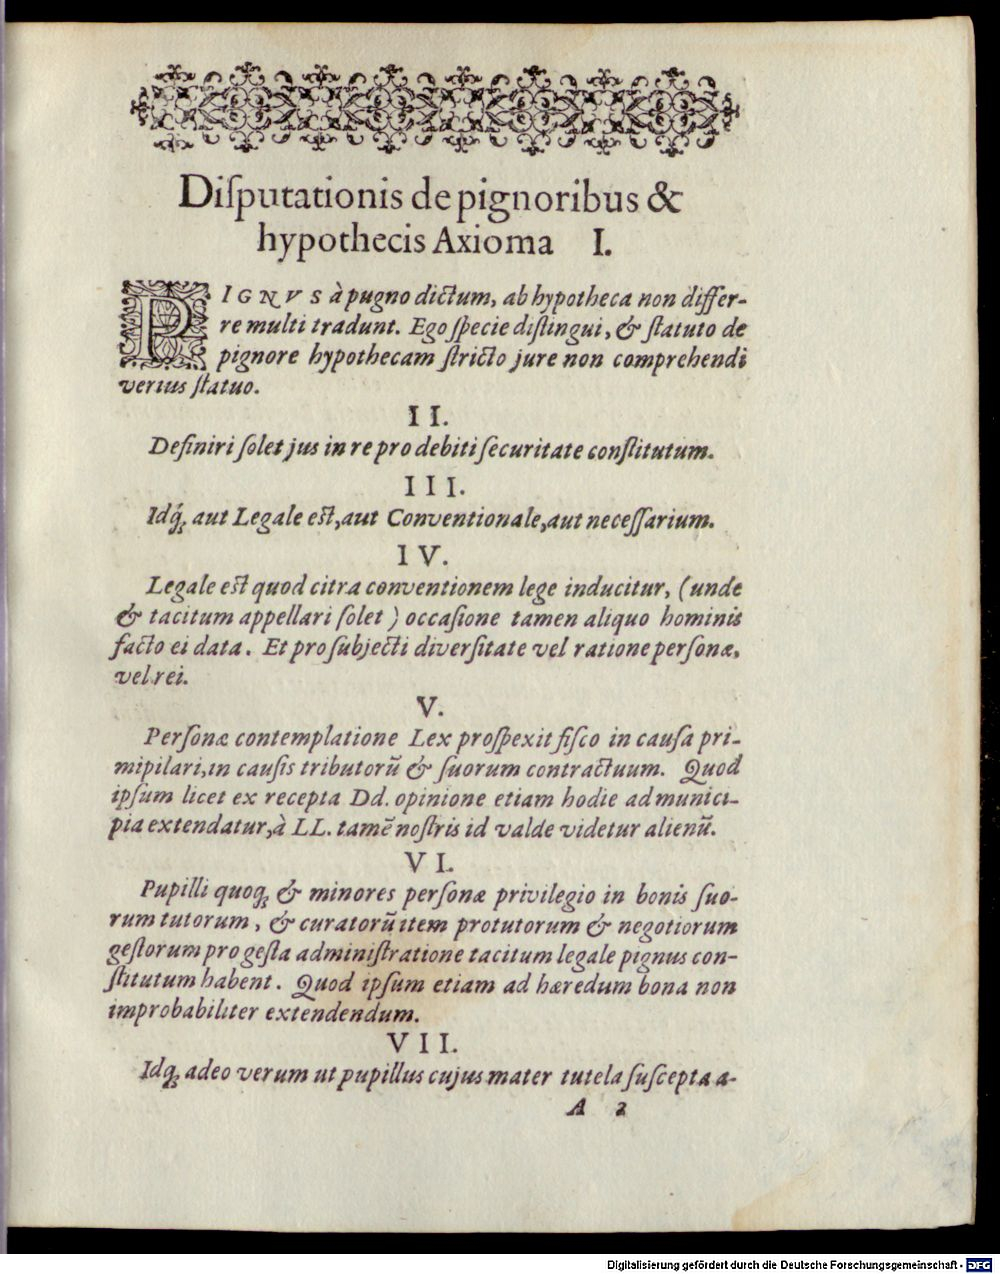 Diſputationis de pignoribus &
hypothecis Axioma I.
PIGNVS à pugno dictum, ab hypotheca non differ-
re multi tradunt. Ego ſpecie diſtingui, & ſtatuto de
pignore hypothecam ſtricto jure non comprehendi
verius ſtatuo.
II.
Definiri ſolet jus in re pro debiti ſecuritate conſtitutum.
III.
Idq́; aut Legale eſt, aut Conventionale, aut neceſſarium.
IV.
Legale eſt quod citra conventionem lege inducitur, (unde
& tacitum appellari ſolet) occaſione tamen aliquo hominis
facto ei data. Et pro ſubjecti diverſitate vel ratione perſonæ,
vel rei.
V.
Perſonæ contemplatione Lex proſpexit fiſco in cauſa pri-
mipilari, in cauſis tributorũ & ſuorum contractuum. Quod
ipſum licet ex recepta Dd. opinione etiam hodie ad munici-
pia extendatur, à LL. tamẽ noſtris id valde videtur alienũ.
VI.
Pupilli quoq; & minores perſonæ privilegio in bonis ſuo-
rum tutorum, & curatorũ item protutorum & negotiorum
geſtorum pro geſta adminiſtratione tacitum legale pignus con-
ſtitutum habent. Quod ipſum etiam ad hæredum bona non
improbabiliter extendendum.
VII.
Idq; adeo verum ut pupillus cujus mater tutela ſuſcepta a-
A 2
Digitalisierung gefördert durch die Deutsche Forschungsgemeinschaft - DFG